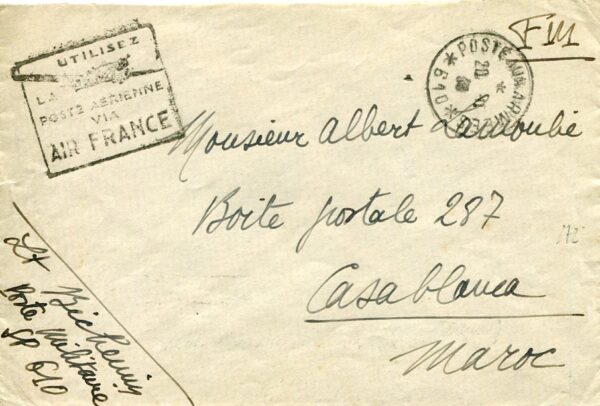 UTILISEZ
LA
POSTE AERIENNE
VIA
AIR FRANCE
POSTE AUX ARMEES
FM
Monsieur Albert
Boite postale 287
Casablanca
Maroc
172
Lt
Poste Militaire
SP 610